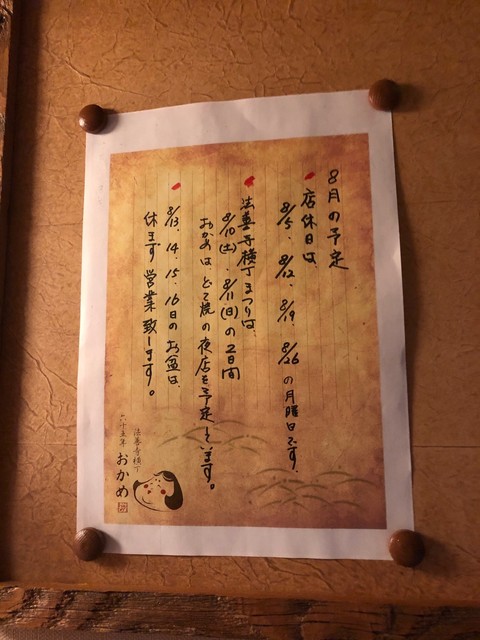 8月の予定
店休日は、
8/5、8/12、8/19、8/26 の月曜日です。
法善寺横丁まつりは、
8/10(土)、8/11(日)の2日間
おかめは、どて焼の夜店を予定しています。
8/13、14、15、16日のお盆は、
休まず営業致します。
法善寺横丁
六十五年 おかめ